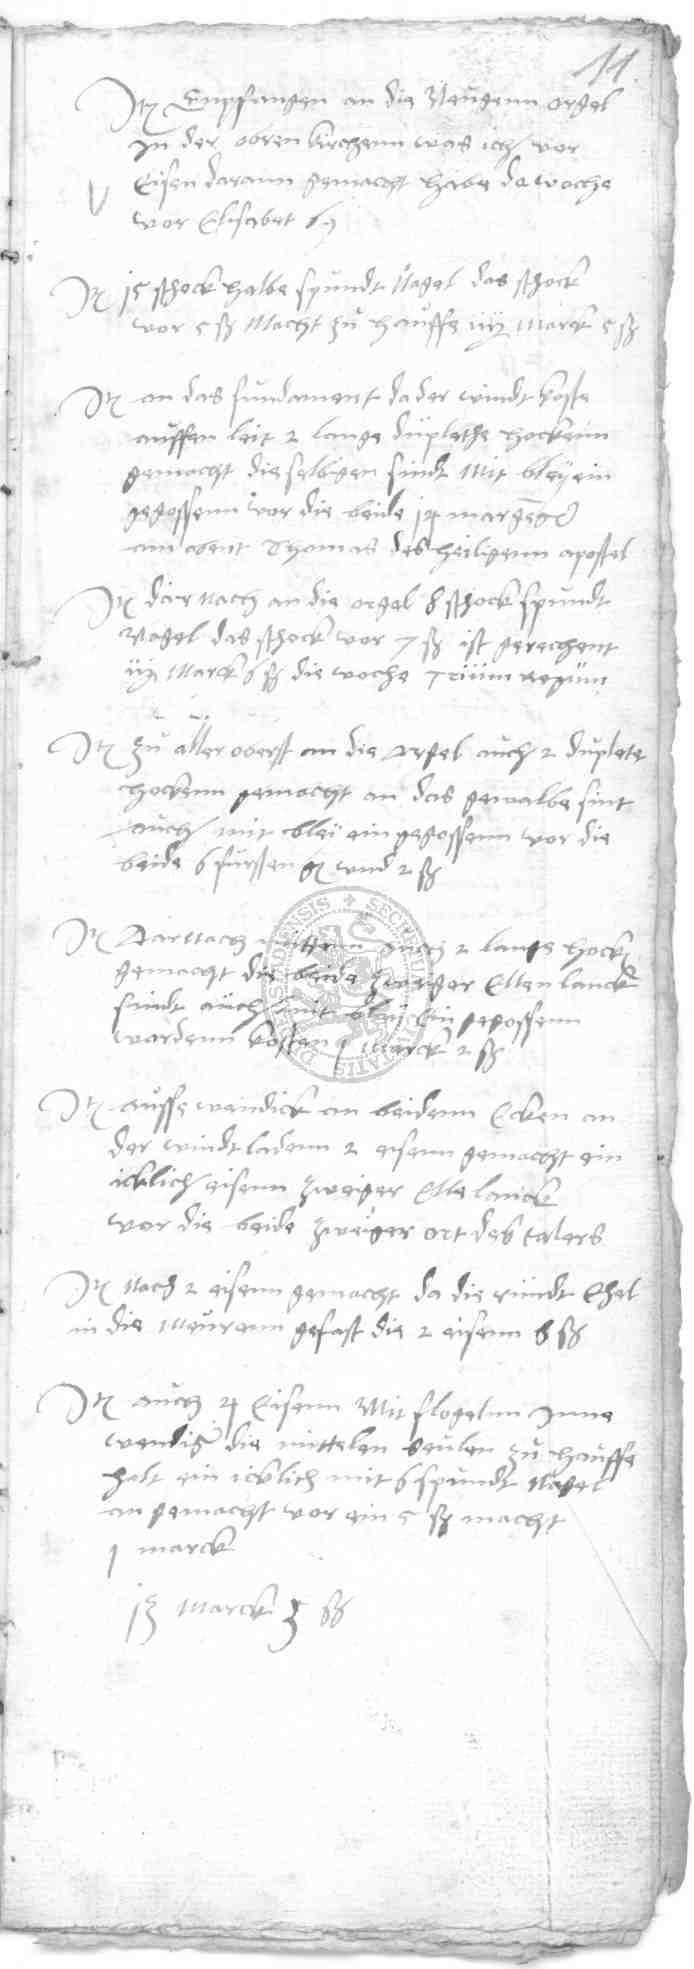 14
Itz Empfangen an die Neugenn orgel
In der obren kirchenn was ich vor
Eisen daraun gemacht habe de woche
vor Elisabet
Itz 15 schock halbe spundt Nagel das schock
vor 5 sh Macht zu hauffe iiij Marck 5 sh
Itz an das fundament da der windt koste
auffen leit 2 lange duplethe hockenn
gemacht die selbigen sindt Mit bley ein
gegossenn vor die beide
am abent Thomas des heiligenn apostel
Itz dar nach an die orgel 8 schock spundt
Nagel das schock vor 7 sh ist gerechent
iij Marck 6 sh die woche Trium regum
Itz zu aller oberst an die orgel auch 2 duplete
hockenn gemacht an das gewalbe sint
auch mit bley ein gegossenn vor die
beide 6 fursten g und 2 sh
Itz Darnach mittenn auch 2 lange hock
gemacht die beide zweiger Ellen lanck
sindt auch mit bley Ein gegossenn
wordenn kosten 1 Marck 2 sh
Itz ausse wendick an beidenn Ecken an
der windtladenn 2 eisenn gemacht ein
icklich eisenn zweiger Elle lanck
vor die beide zweiger ort des talers
Itz Nach 2 eisenn gemacht da die rundt
in die Meurenn gefast die 2 eisenn 8 sh
Itz auch 4 Eisenn Mit flogelnn Inne
wendig die mittelen seulen zu hauffe
halt ein icklich mit 6 spundt Nagel
an gemacht vor ein 5 sh macht
1 marck
13 Marck 3 sh